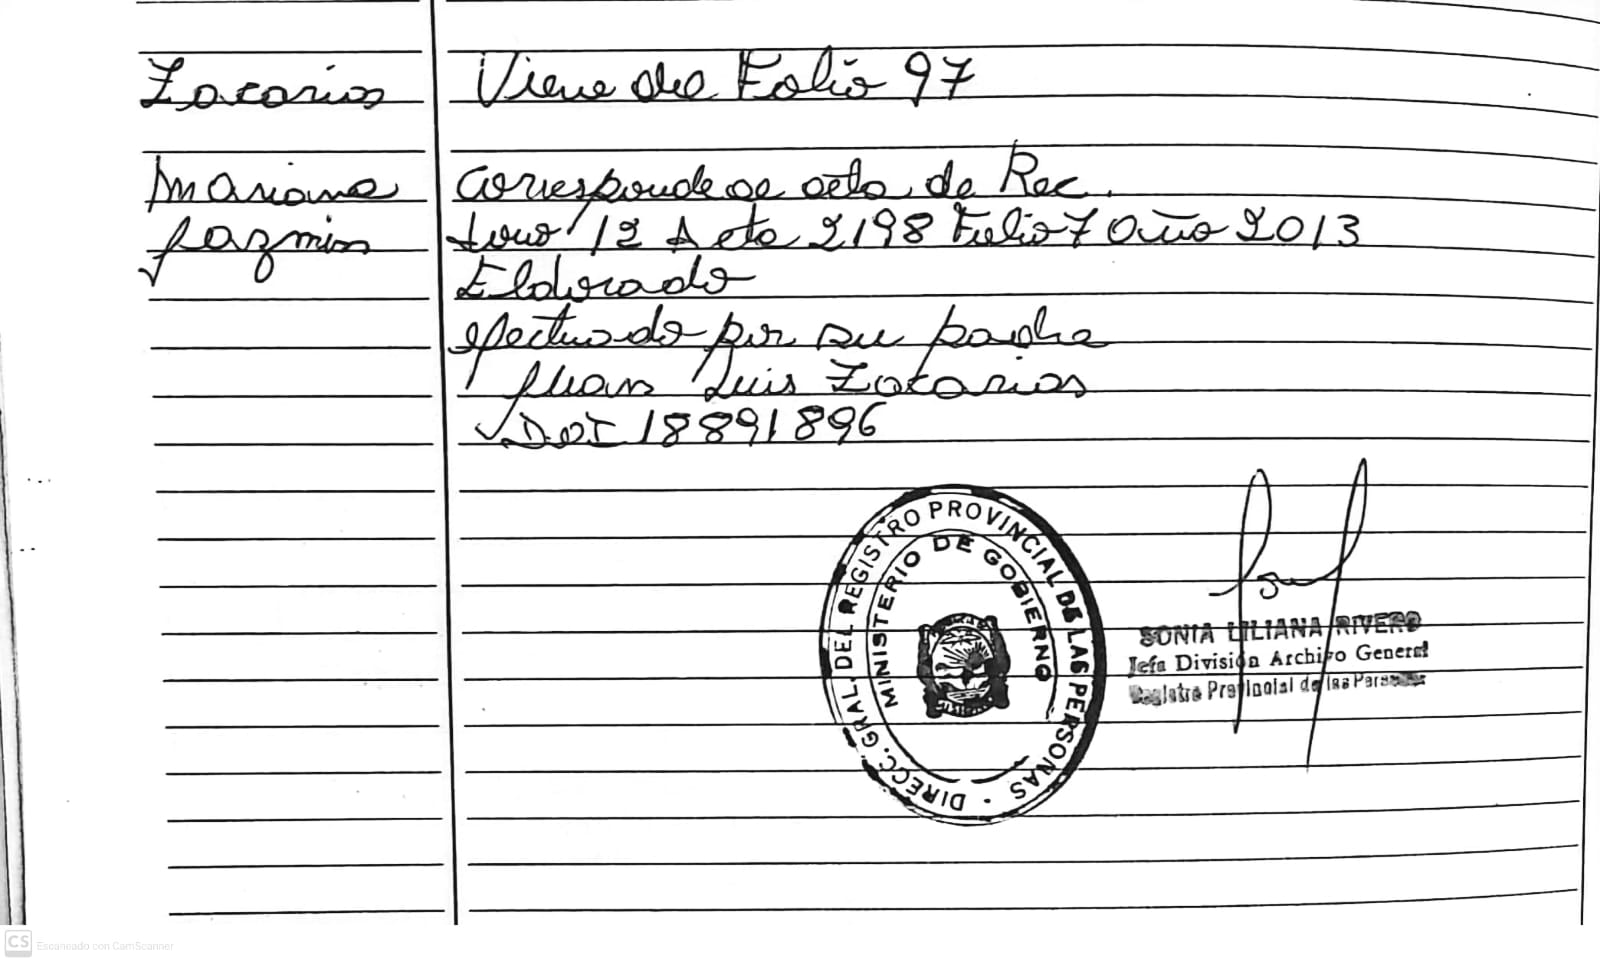 Zacarias
Viene del Folio 97
Mariana
Jazmin
Corresponde al acta de Rec.
tomo 12 Acta 2198 Folio 7 Año 2013
Eldorado
efectuado por su padre
Juan Luis Zacarias
DNI 18891896
DIRECC. GRAL. DEL REGISTRO PROVINCIAL DE LAS PERSONAS
MINISTERIO DE GOBIERNO
SONIA LILIANA RIVERO
Jefa División Archivo General
Registro Provincial de las Personas
CS Escaneado con CamScanner